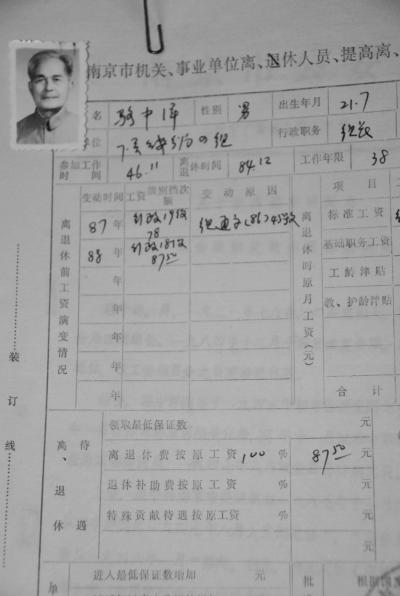 南京市机关、事业单位离、退休人员、提高离、
名 骆中洋 性别 男 出生年月 21.7
位 行政职务 组员
参加工作时间 46.11 离退休时间 84.12 工作年限 38
离退休前工资演变情况 变动时间 工资级别档次额 变动原因 离退休时原月工资(元) 项目
87年 行政19级 78 标准工资
88年 行政18级 87.50 基础职务工资
年 工龄津贴
年 教、护龄津贴
年
年 合计
离、退休待遇 领取最低保证数 元
离退休费按原工资 100 % 87.50 元
退休补助费按原工资 % 元
特殊贡献待遇按原工资 % 元
单 进入最低保证数增加 元 批 根据国
装订线